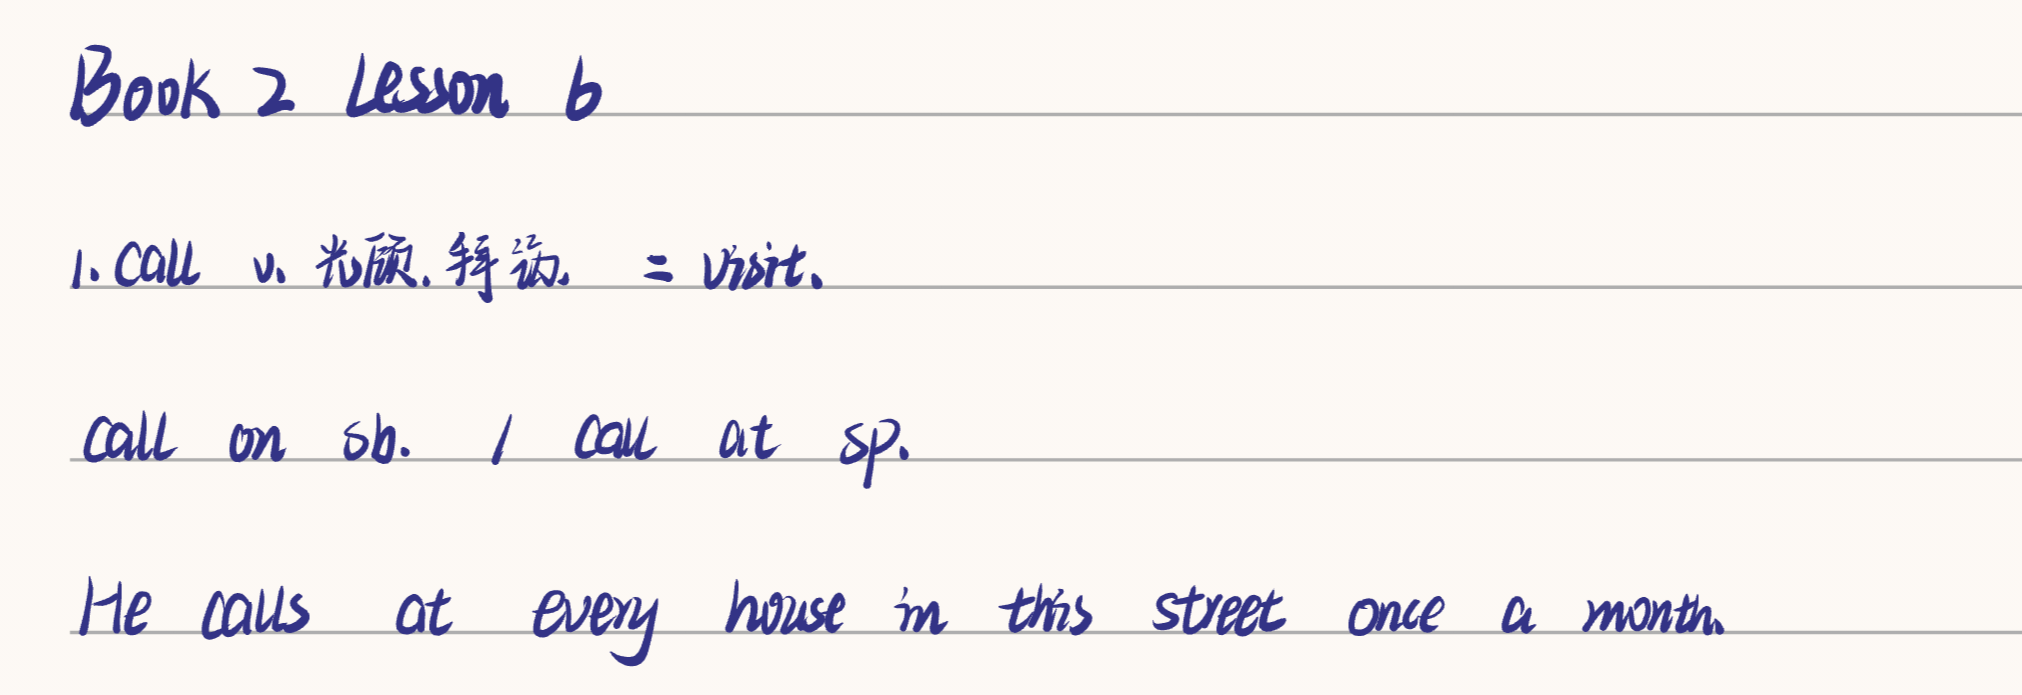 Book 2 Lesson 6
1. Call v. 光顾. 拜访. = visit.
call on sb. / call at sp.
He calls at every house in this street once a month.